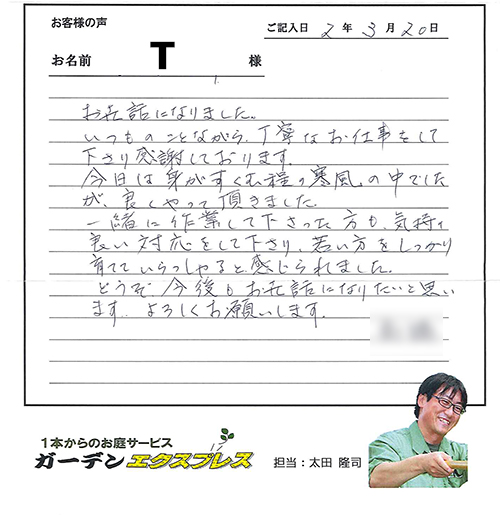 お客様の声
ご記入日 2年3月20日
お名前 T 様
お世話になりました。
いつものことながら、丁寧なお仕事をして
下さり感謝しております。
今日は身がすくむ程の寒風の中でした
が、良くやって頂きました。
一緒に作業して下さった方も、気持ィ
良い対応をして下さり、若い方をしっかり
育てていらっしゃると感じられました。
どうぞ今後もお世話になりたいと思い
ます。よろしくお願いします。
1本からのお庭サービス
ガーデンエクスプレス
担当：太田 隆司